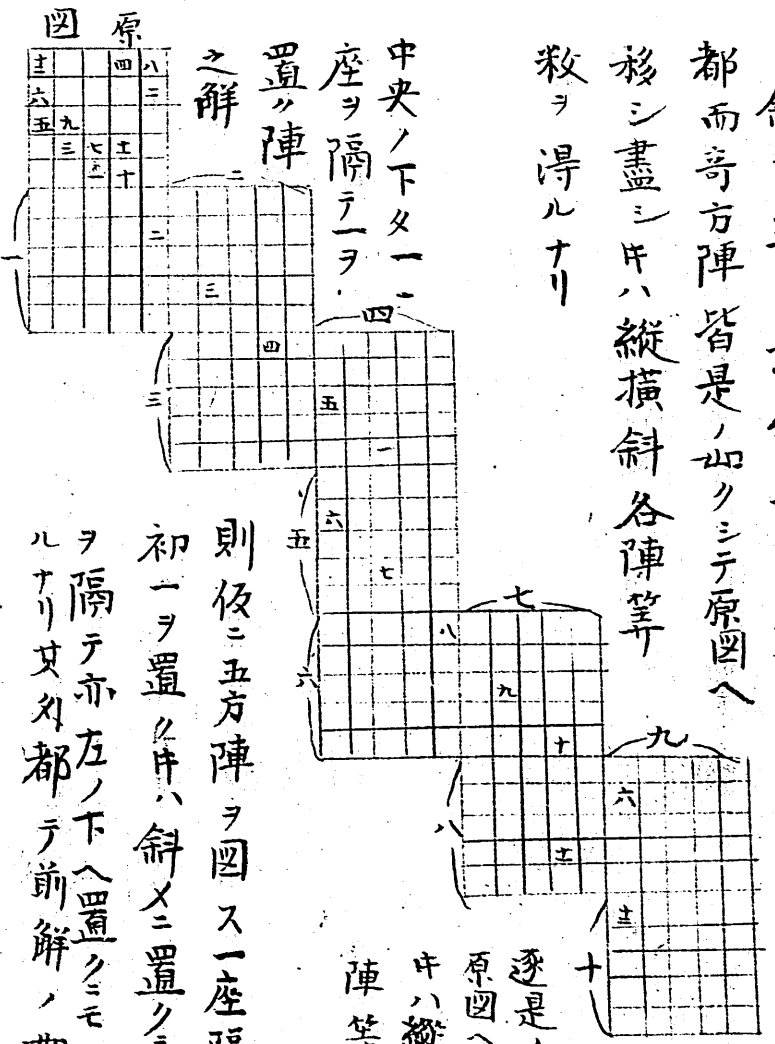 都而奇方陣皆是ノ如クシテ原図ヘ
移シ盡シ㐧ハ縦横斜各陣等
数ヲ得ルナリ
中央ノ下タ一
座ヲ隔テ一ヲ
置ノ陣
之解
原図
八 四 十三
二 六
九 五
十一 七 三
十 十二
一
二
二
三
四
三
四
五
一
六
七
五
八
六
七
九
十
九
六
十一
八
十三
十
則仮ニ五方陣ヲ図ス一座隔
初一ヲ置クキハ斜メニ置ク
ヲ隔テ亦左ノ下ヘ置クニモ
ルナリ其外都テ前解ノ
逐是
原図ヘ
キハ縦
陣等